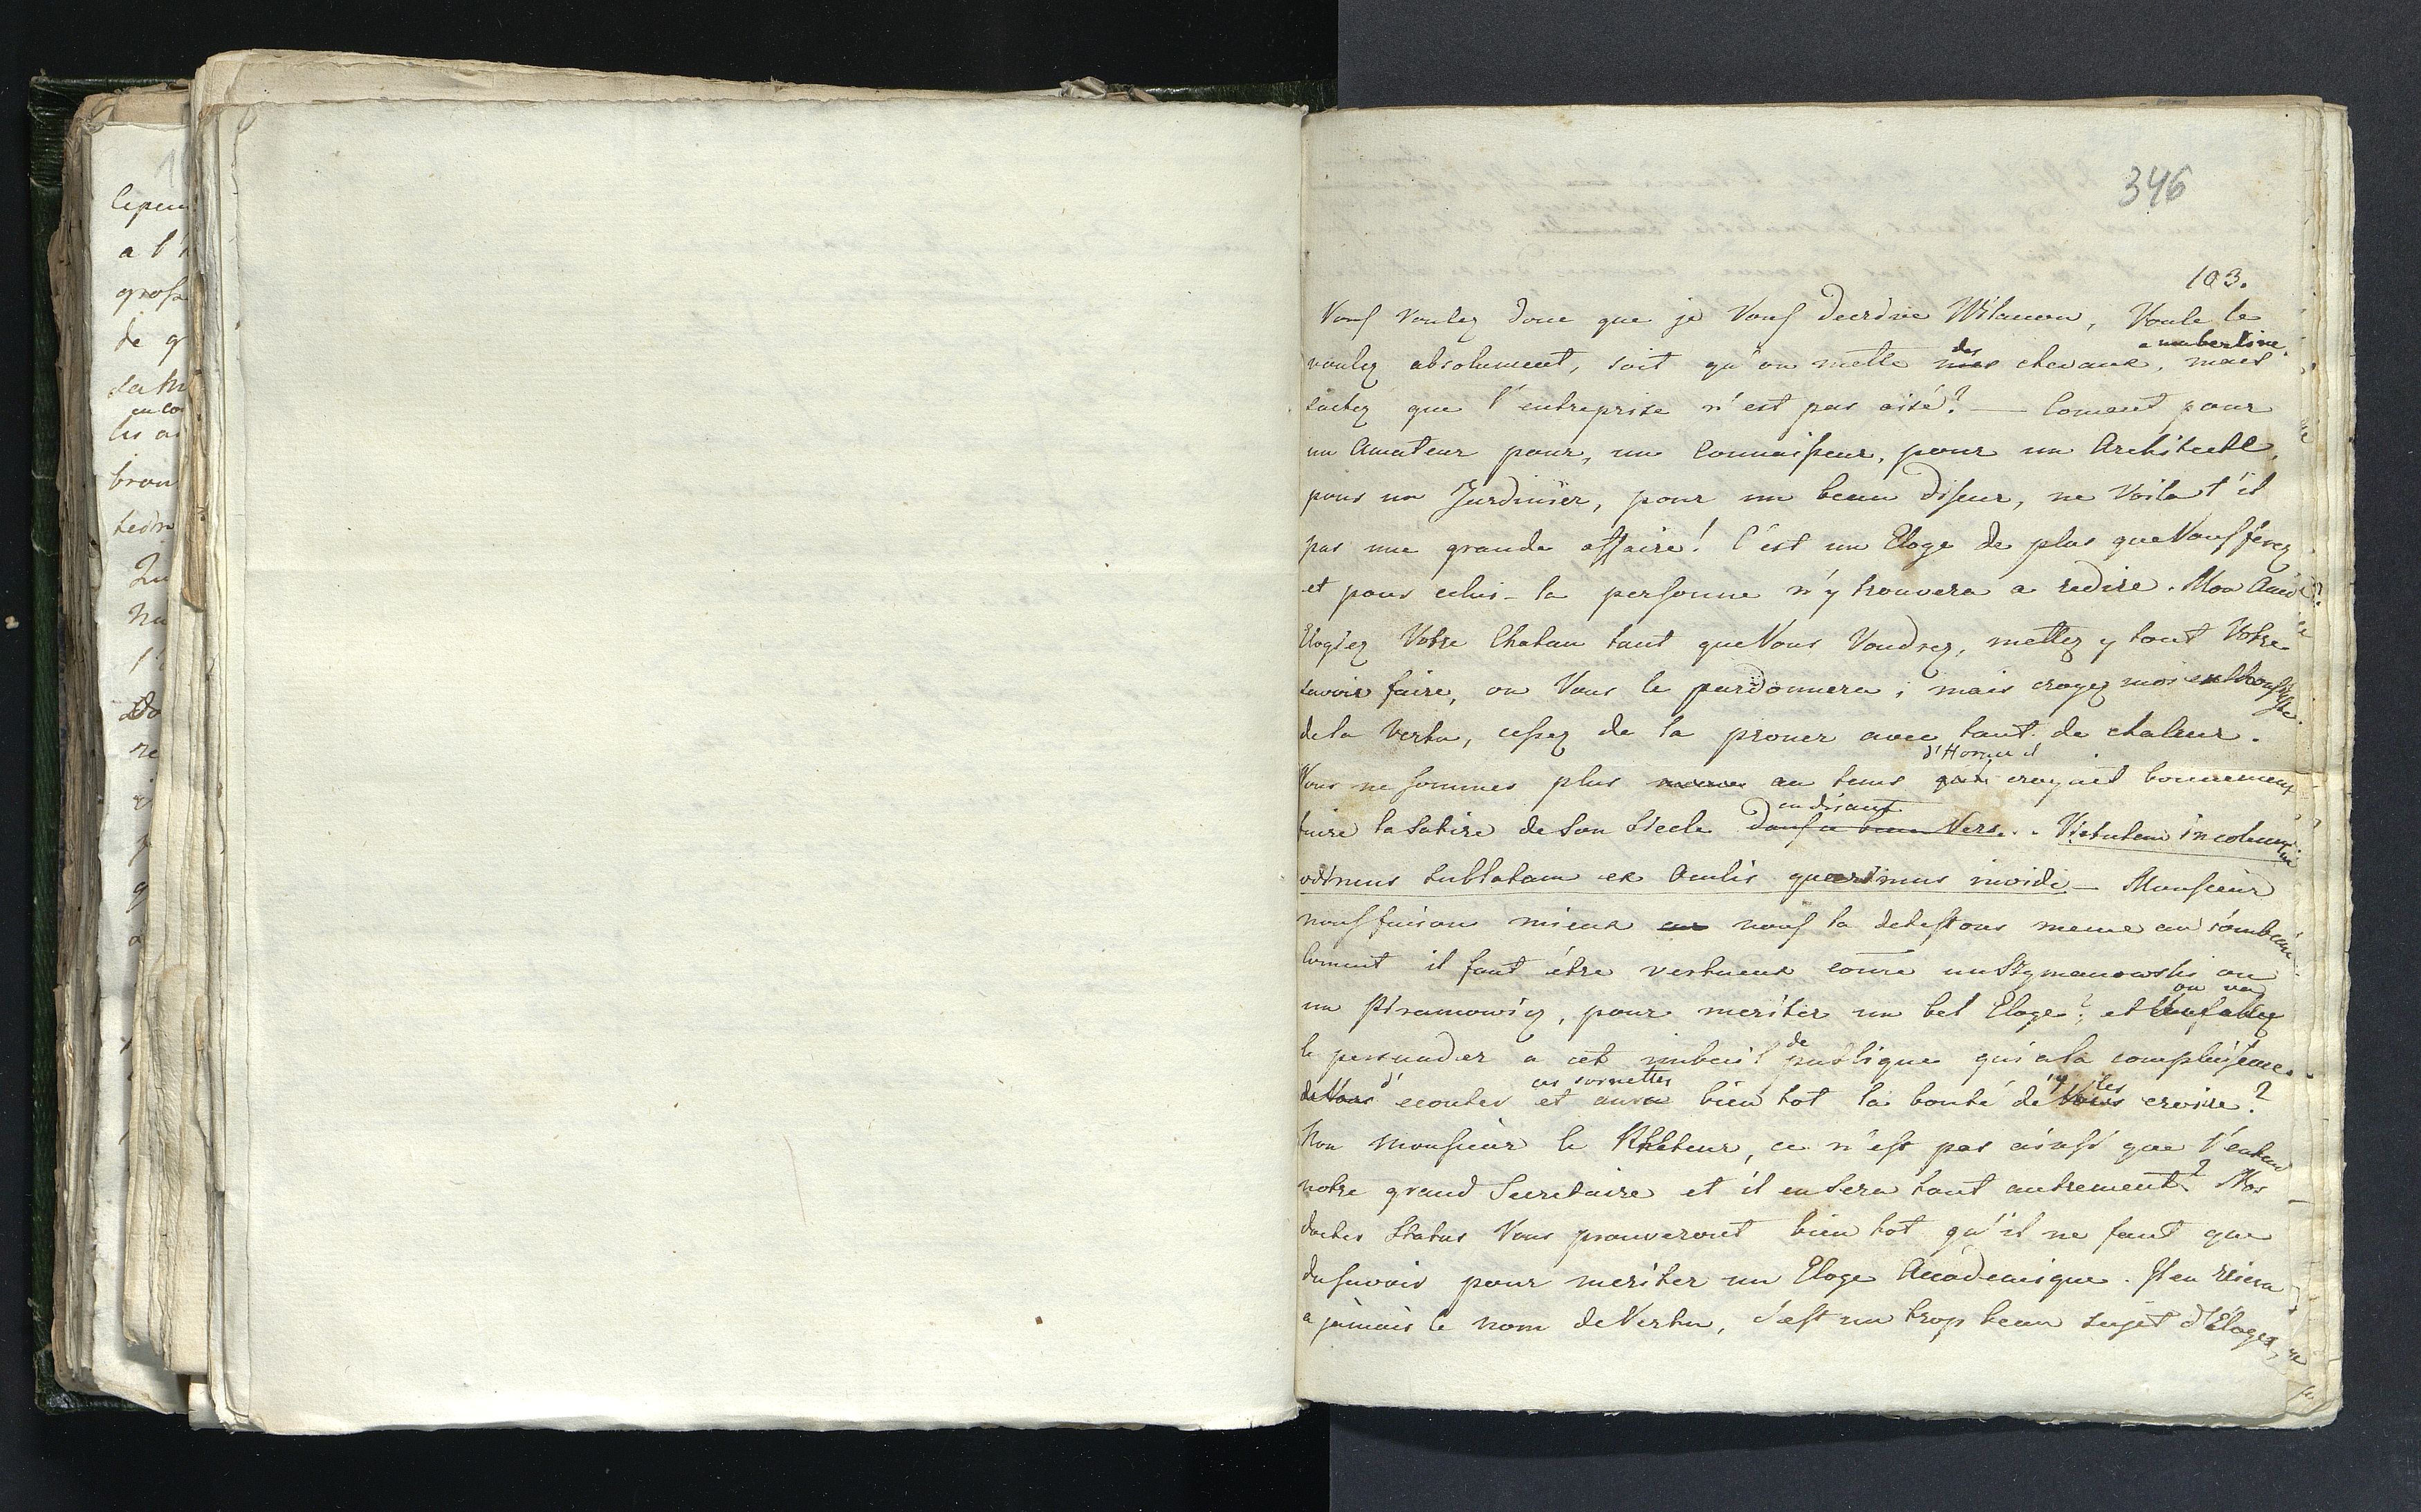 346
103.
Vous voulez donc que je Vous decrive Wilanow, Vous le
voulez absolument, soit qu'on mette des chevaux a ma berline, mais
sachez que l'entreprise n'est pas aisé? — Coment pour
un Amateur pour, un Connaisseur, pour un Architecte,
pour un Jardinier, pour un beau diseur, ne Voila t'il
pas une grande affaire! C'est un Eloge de plus que Vous ferez
et pour celui-la personne n'y trouvera a redire. Mon Ami
Elogiez Votre Chatau tant que Vous Voudrez, mettez y tout Votre
savoir faire, on Vous le pardonnera; mais croyez moi enthousiaste
de la Vertu, cessez de la proner avec tant de chaleur.
Nous ne sommes plus au tems qu' croyait bonnement
faire la Satire de son Siecle en disant Virtutem incolumem
odimus sublatam ex oculis quaerimus invidi — Monsieur
nous faison mieux nous la detestons meme au tombeau
Coment il faut être vertueux come un Szymanowski ou
un Piramowicz, pour meriter un bel Eloge? et on va
le persuader a cet imbecil de publique qui a la complaisance
d' ecouter ces sornettes et aura bien tot la bonté d'y les croire?
Non Monsieur le Rheteur, ce n'est pas ainsi que l'entend
notre grand Secretaire et il en sera tout autrement? Nos
doctes Status Vous prouveront bien tot qu'il ne faut que
du savoir pour meriter un Eloge Académique.
a jamais le nom de Vertu, c'est un trop beau sujet d'Eloges,